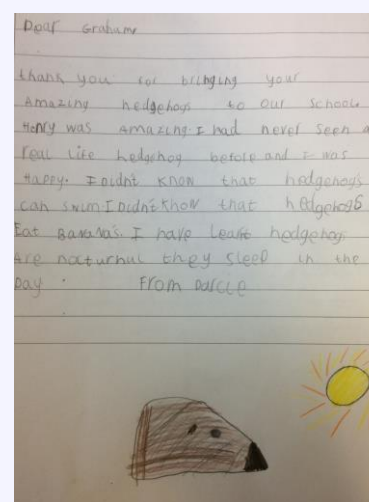 Dear Graham
thank you for bringing your
Amazing hedgehogs to our school
Henry was amazing. I had never seen a
real life hedgehog before and I was
Happy. I Didn't know that hedgehogs
can swim I Didn't know that hedgehogs
Eat Bananas. I have learnt hedgehogs
Are nocturnul they sleep in the
Day. From Darcie